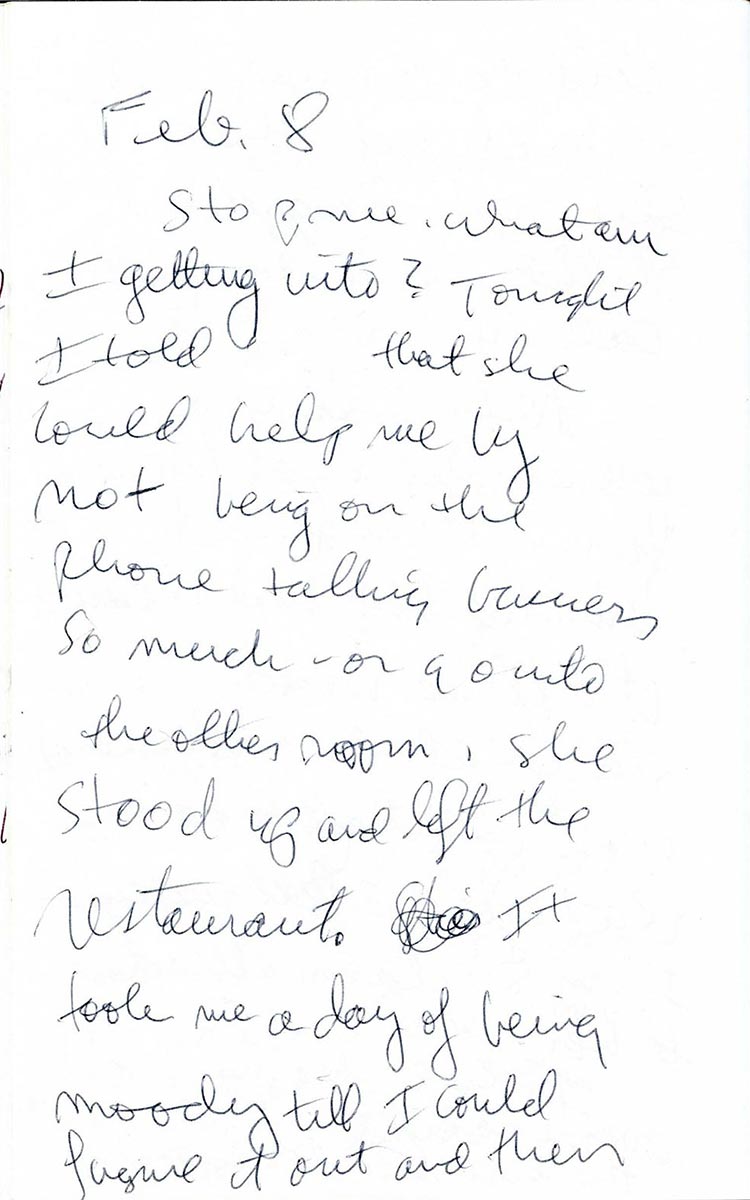 Feb. 8
Stop me. What am
I getting into? Tonight
I told that she
could help me by
not being on the
phone talking business
so much - or go into
the other room, she
stood up and left the
restaurant. It
took me a day of being
moody till I could
figure it out and then